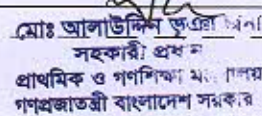 মোঃ আলাউদ্দিন ভূঞা
সহকারী প্রধান
প্রাথমিক ও গণশিক্ষা মন্ত্রণালয়
গণপ্রজাতন্ত্রী বাংলাদেশ সরকার